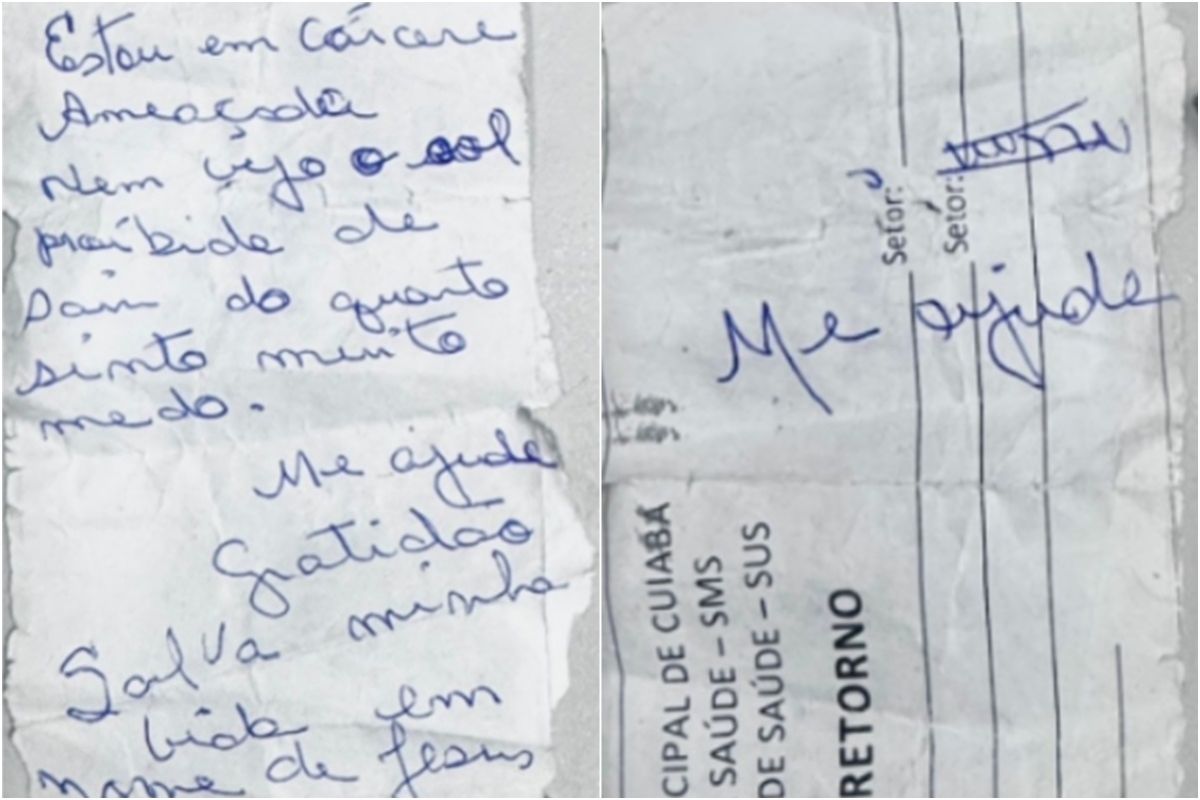 Estou em cárcere
Ameaçada
Nem vejo o sol
proibida de
sair do quarto
sinto muito
medo.
Me ajude
Gratidão
Salva minha
vida em
nome de Jesus
Setor:
Setor:
Me ajude
CIPAL DE CUIABÁ
SAÚDE – SMS
DE SAÚDE – SUS
RETORNO